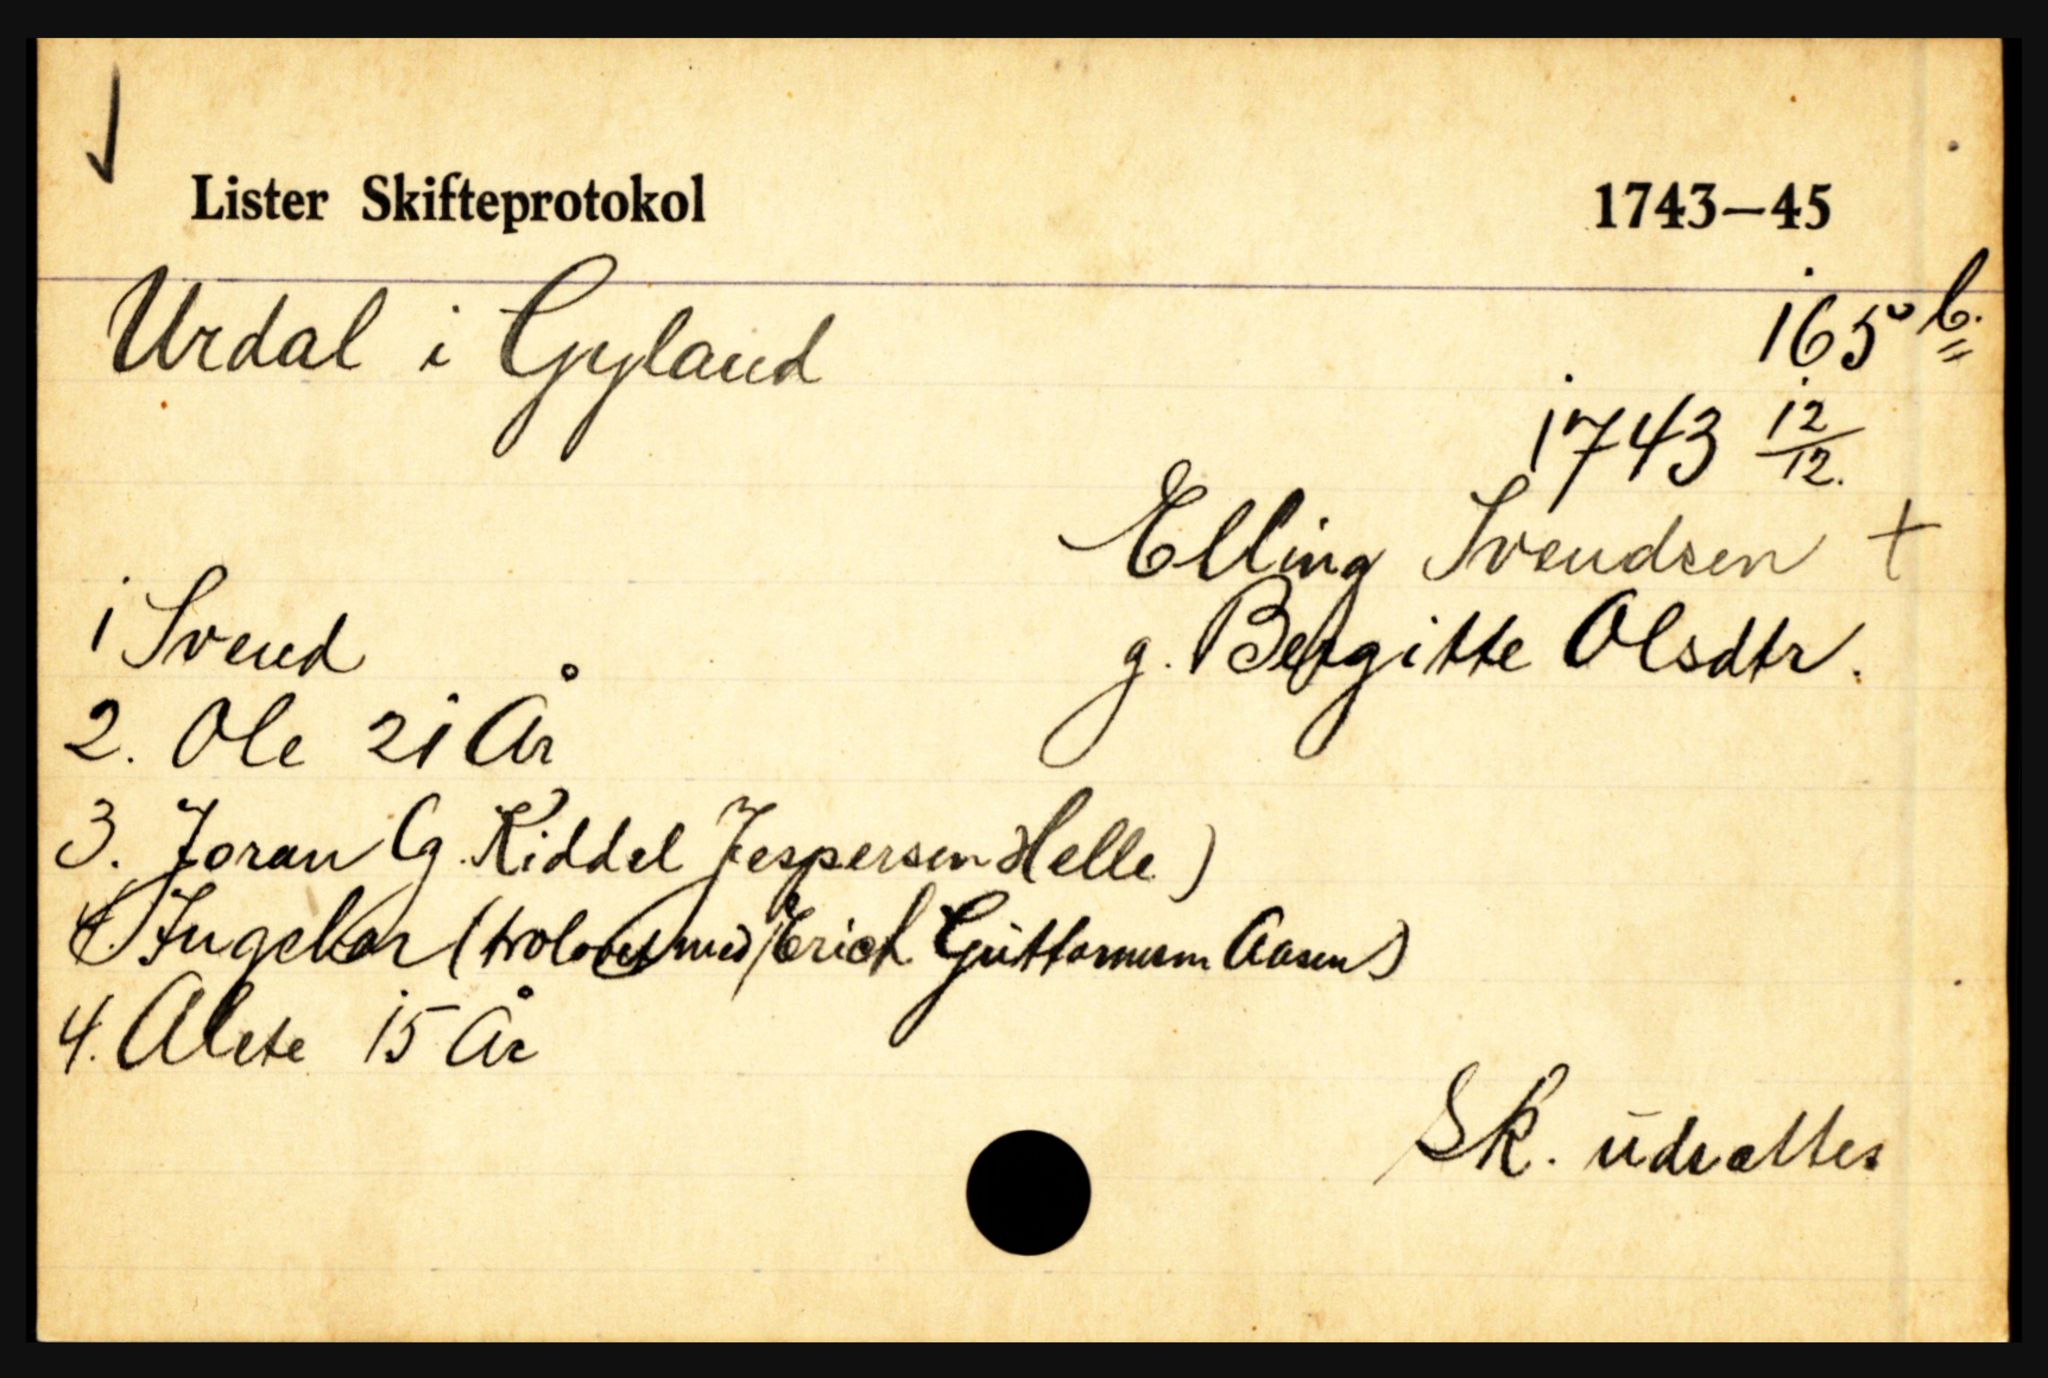 Lister Skifteprotokol 1743—45
Urdal i Gyland 165 b.
1743 12/12.
Elling Svendsen +
1 Svend g. Bergitte Olsdtr.
2. Ole 21 År
3. Joran (g. Kiddel Jespersen Helle)
Ingebor (trolovet med Erich Guttormsen Aasen)
4. Alete 15 År
Sk. udsattes